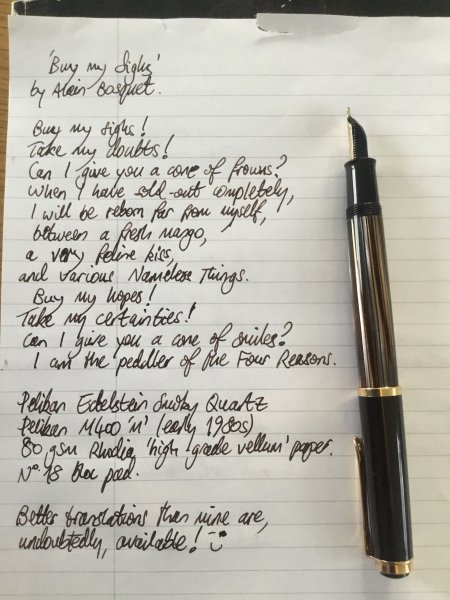 'Buy my Sighs'
by Alain Bosquet.
Buy my sighs!
Take my doubts!
Can I give you a cone of frowns?
When I have sold out completely,
I will be reborn far from myself,
between a fresh mango,
a very feline kiss,
and various Nameless Things.
Buy my hopes!
Take my certainties!
Can I give you a cone of smiles?
I am the peddler of the Four Reasons.
Pelikan Edelstein Smoky Quartz
Pelikan M400 'M' (early 1980s)
80 gsm Rhodia 'high grade vellum' paper.
Nº. 18 bloc pad.
Better translations than mine are,
undoubtedly, available!